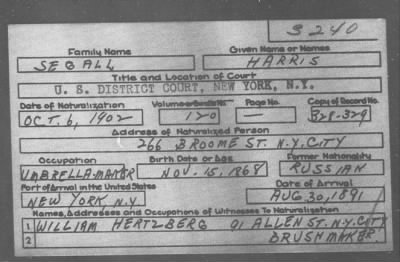 S 240
Family Name Given Name or Names
SEGALL HARRIS
Title and Location of Court
U. S. DISTRICT COURT, NEW YORK, N.Y.
Date of Naturalization Volume or Bundle No. Page No. Copy of Record No.
OCT. 6, 1902 120 — 328-329
Address of Naturalized Person
266 BROOME ST. N.Y. CITY
Occupation Birth Date or Age Former Nationality
UMBRELLA-MAKER NOV. 15, 1868 RUSSIAN
Port of Arrival in the United States Date of Arrival
NEW YORK, N.Y. AUG. 30, 1891
Names, Addresses and Occupations of Witnesses To Naturalization
1 WILLIAM HERTZBERG 91 ALLEN ST. N.Y. CITY
2 BRUSHMAKER